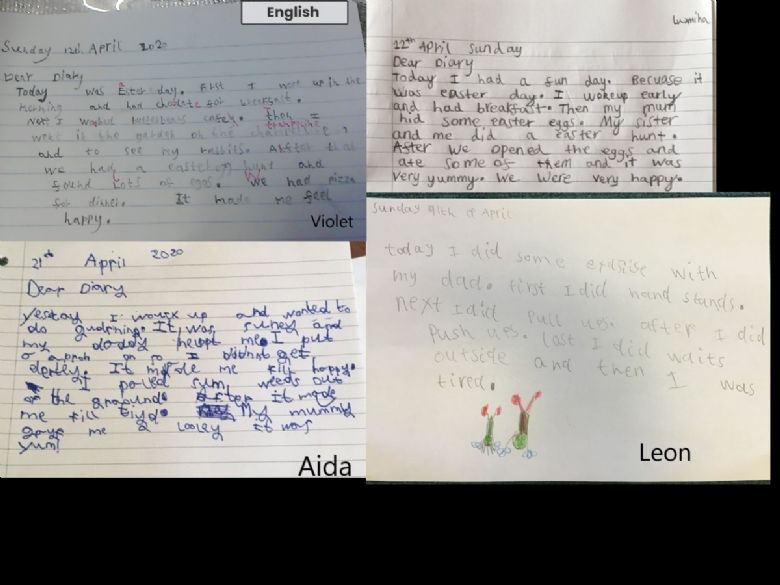 English
Sunday 12th April 2020
Dear Diary
Today was Easter day. First I woke up in the
morning and had for breakfast.
Next I watched cartoons. Then I
trampoline
went in the garden on the
and to see my rabbits. After that
we had a easter egg hunt and
found lots of eggs. We had pizza
for dinner. It made me feel
happy.
Violet
Lumiha
12th April Sunday
Dear Diary
Today I had a fun day. Becuase it
was easter day. I wokeup early
and had breakfast. Then my mum
hid some easter eggs. My sister
and me did a easter hunt.
After we opened the eggs and
ate some of them and it was
very yummy. We were very happy.
21th April 2020
Dear Diary
yestay I woux up and wonted to
do gudning. It was suney and
my daddy helopt me. I put
a aprah on so I get
dertey. It made me fill happy.
I poled sum weeds out
of the graound. After it mads
me fill tiyd. My mummy
gave me a looley it was
yum!
Aida
Sunday 91th of April
today I did some exrsise with
my dad. first I did hand stands.
next I did pull ues. after I did
push ues. last I did waits
outside and then I was
tired.
Leon